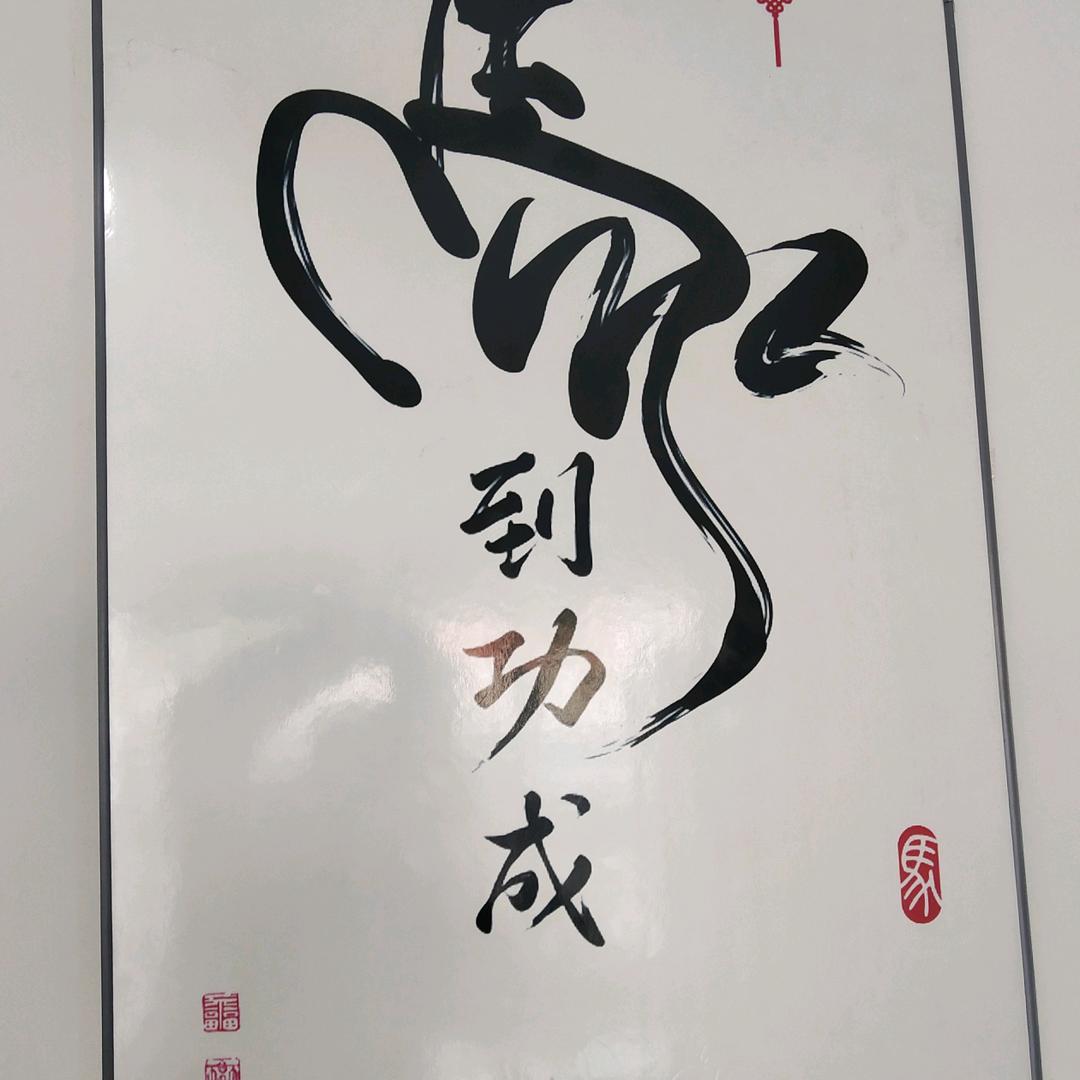 馬
到
功
成
馬